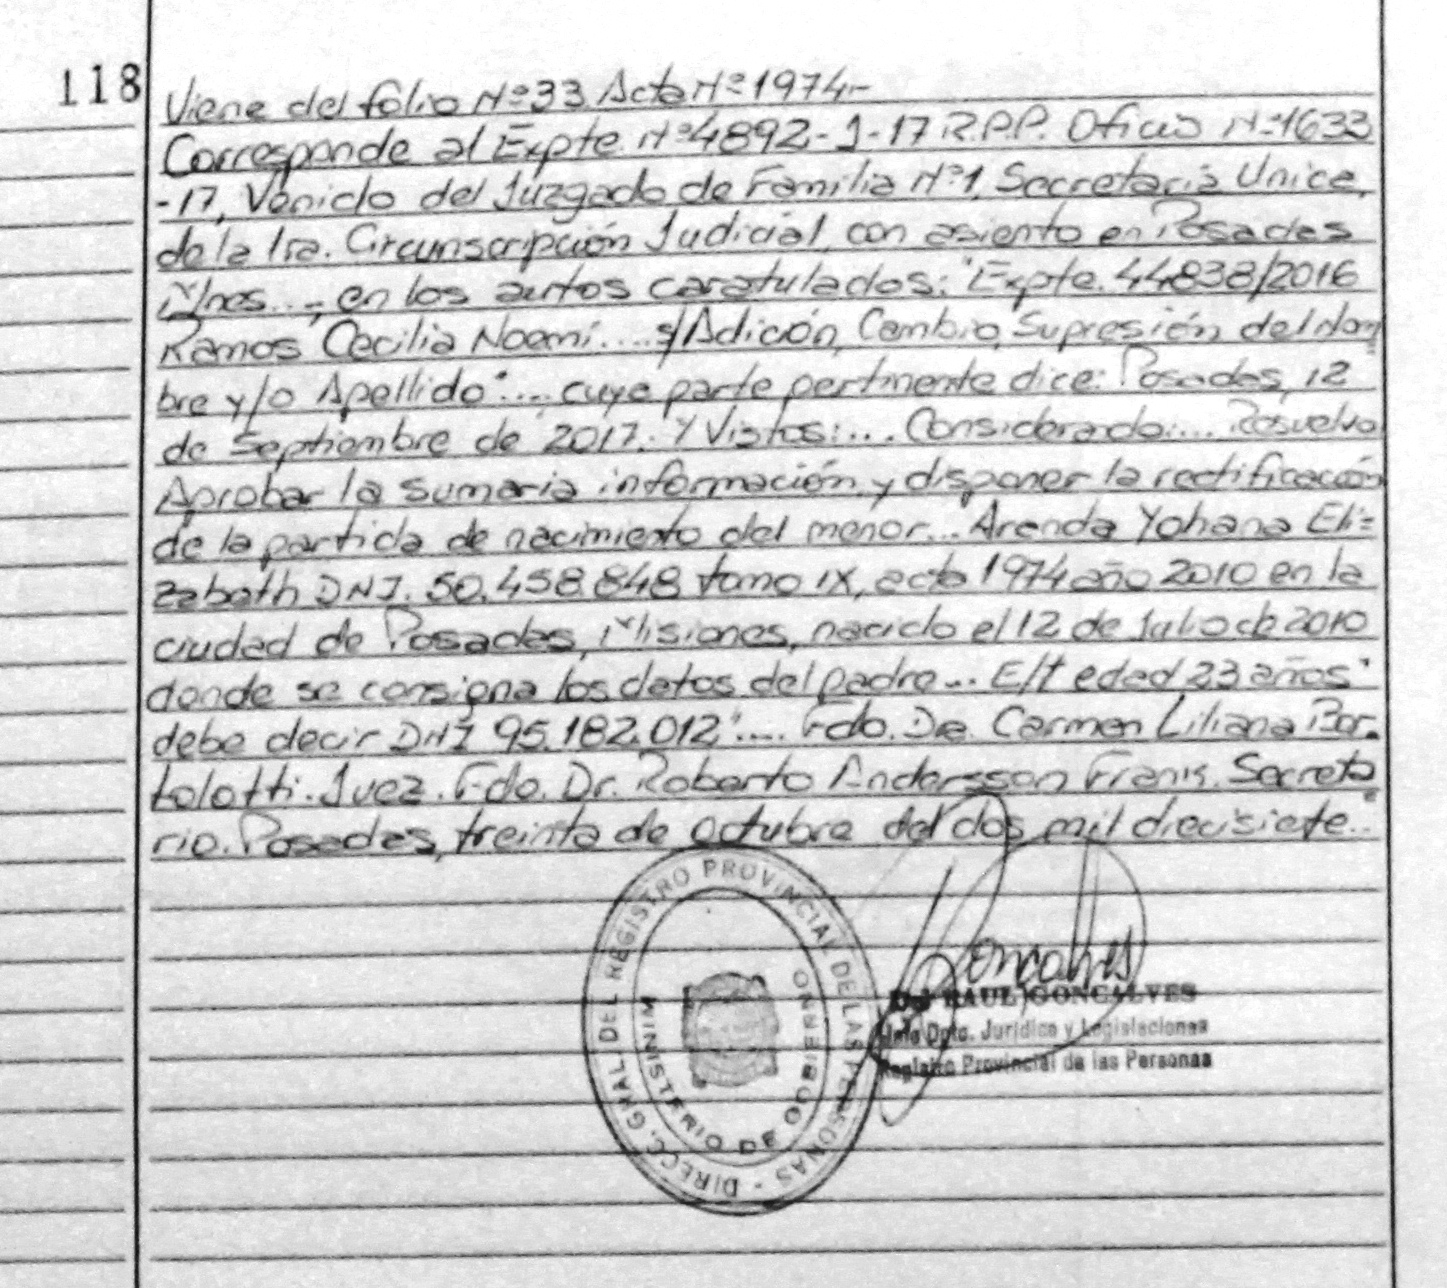 118
Viene del folio Nº 33 Acta Nº 1974.-
Corresponde al Expte. Nº 4892-J-17 R.P.P. Oficio Nº 1633
-17, Venido del Juzgado de Familia Nº 1, Secretaria Unica,
de la 1ra. Circunscripción Judicial, con asiento en Posadas
Mnes..., en los autos caratulados: "Expte. 44838/2016
Ramos Cecilia Noemí.... s/Adición, Cambio, Supresión del Nom
bre y/o Apellido".... cuya parte pertinente dice: Posadas, 12
de Septiembre de 2017. Y Vistos:.... Considerando:.... Resuelvo
Aprobar la sumaria información y disponer la rectificación
de la partida de nacimiento del menor... Arenda Yohana Eli=
zabeth DNI. 50.458.848 tomo IX, acta 1974 año 2010 en la
ciudad de Posadas, Misiones, nacido el 12 de Julio de 2010
donde se consigna los datos del padre... E/t edad 23 años"
debe decir DNI 95.182.012".... Fdo. Dra. Carmen Liliana Bor-
tolotti. Juez. Fdo. Dr. Roberto Andersson Frank. Secreta
rio. Posadas, treinta de Octubre del dos mil diecisiete..
DIRECC. GRAL. DEL REGISTRO PROVINCIAL DE LAS PERSONAS -
MINISTERIO DE GOBIERNO
Goncalves
RAUL GONCALVES
Jefe Dpto. Jurídico y Legislaciones
Registro Provincial de las Personas